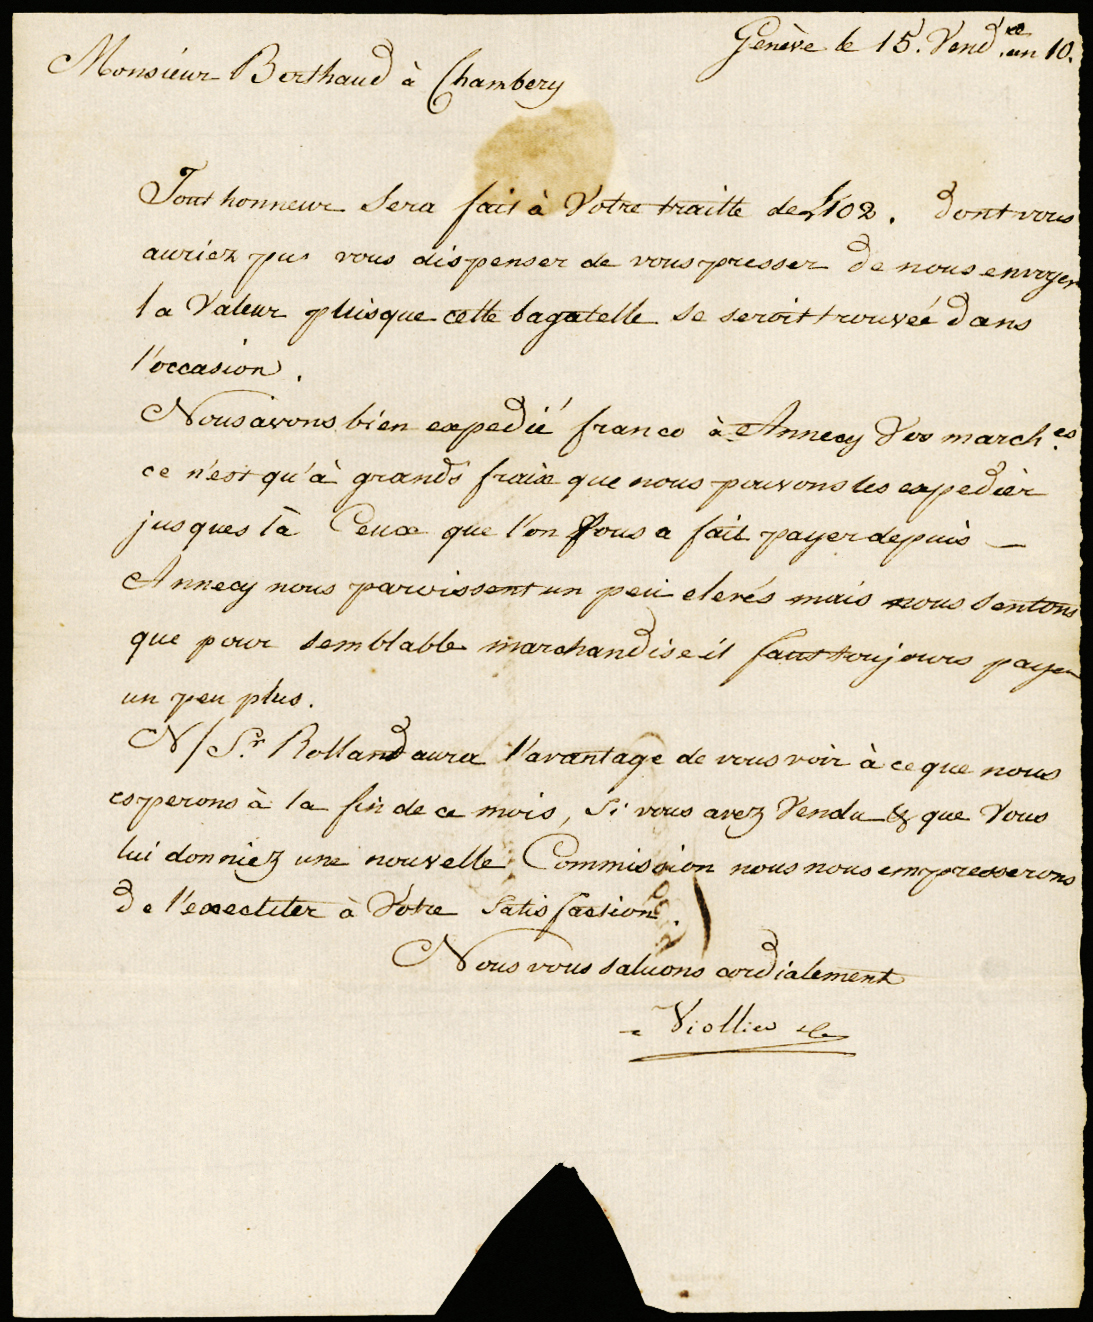 Genève le 15. Vend.re an 10.
Monsieur Berthaud à Chambery
Tout honneur sera fait à Votre traitte de £102. dont vous
auriez pu vous dispenser de vous presser de nous envoyer
la Valeur puisque cette bagatelle se seroit trouvée dans
l'occasion.
Nous avons bien expedié franco à Annecy Vos march.es
ce n'est qu'à grands fraix que nous pouvons les expedièr
jusques là Ceux que l'on Vous a fait payer depuis —
Annecy nous paroissent un peu elevés mais nous sentons
que pour semblable marchandise il faut toujours payer
un peu plus.
N/ Sr. Rolland aura l'avantage de vous voir à ce que nous
esperons à la fin de ce mois, si vous avez Vendu & que Vous
lui donniez une nouvelle Commission nous nous empresserons
de l'executer à Votre satisfaction.
Nous vous saluons cordialement
Viollier